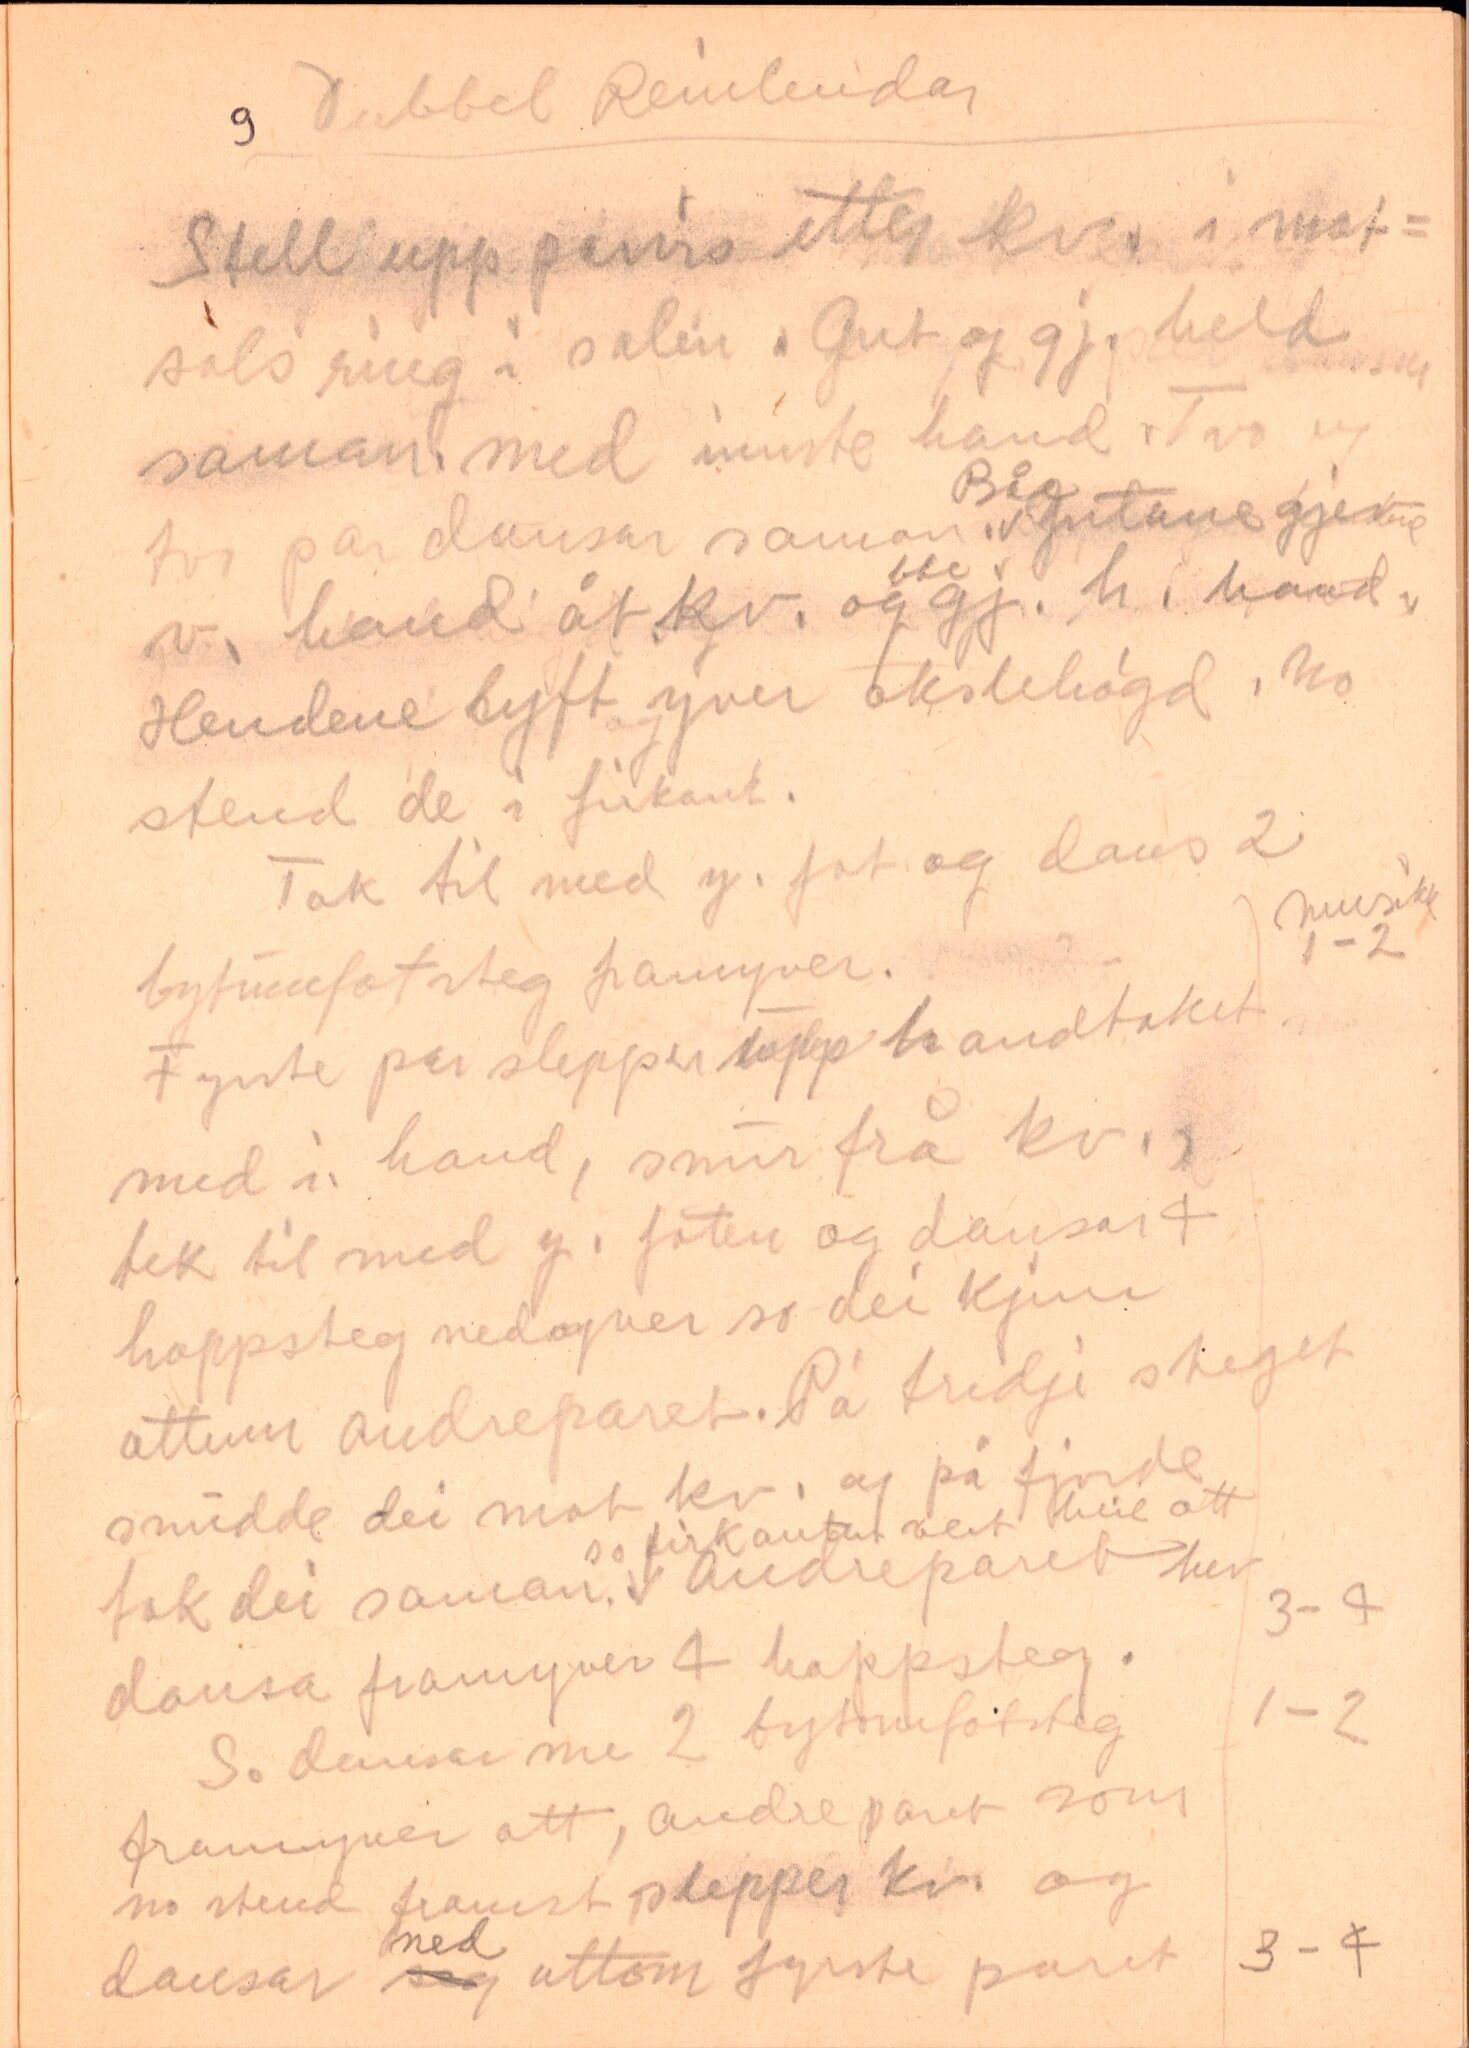 9 Dubbel Reinlendar
Stell upp parvis etter kv. i mot=
sols ring i salen. Gut og gj. held
saman med inste hand. Two og
two par dansar saman. Båe gutane gjev
v. hand åt kv. og bbe gj. h. hand.
Hendene lyft yver okslehøgd. No
stend de i firkant.
Tak til med y. fot og dans 2
musikk
bytumfotsteg framyver. 1-2
Fyrste par slepper handtaket
med i. hand, snur frå kv.,
tek til med y. foten og dansar 4
hoppsteg nedoyver so dei kjem
attum andreparet. På tridje steget
snudde dei mot kv. og på fjorde
so firkanten vert heil att
tok dei saman. Andreparet hev
3-4
dansa framyver 4 hoppsteg.
So dansar me 2 bytomfotsteg 1-2
framyver att, andreparet som
no stend framst slepper kv. og
dansar ned attom fyrste paret 3-4